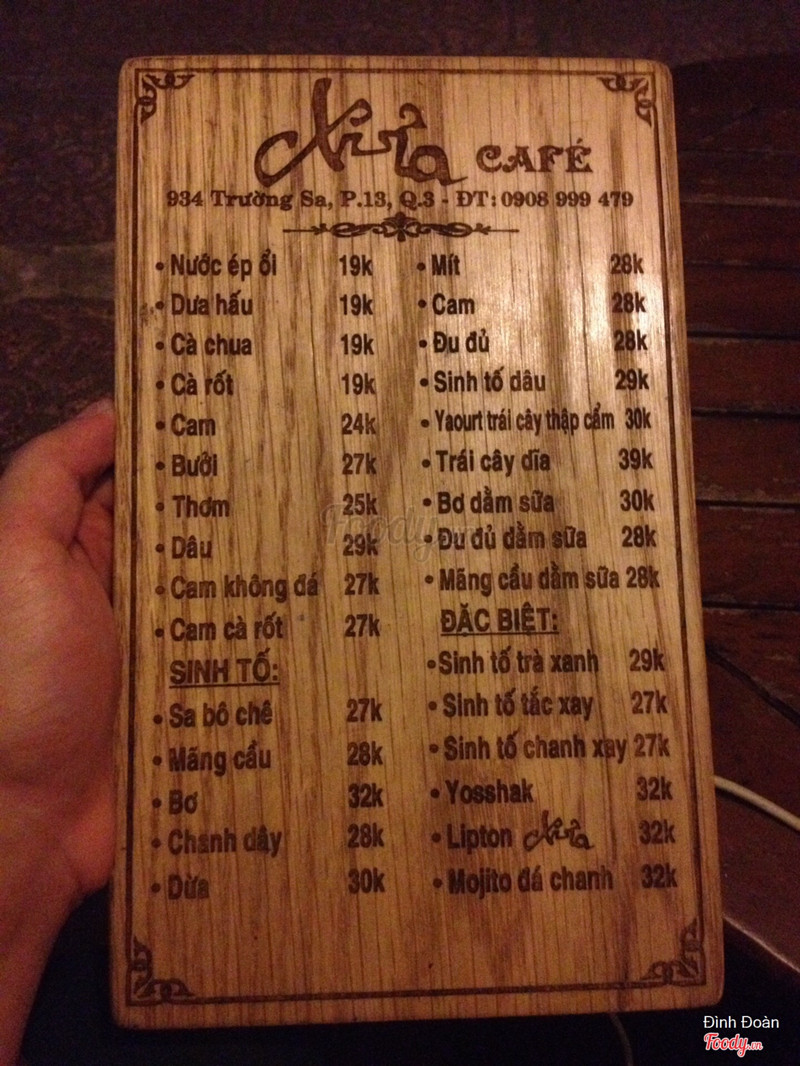 Xưa CAFÉ
934 Trường Sa, P.13, Q.3 - ĐT: 0908 999 479
• Nước ép ổi 19k
• Dưa hấu 19k
• Cà chua 19k
• Cà rốt 19k
• Cam 24k
• Bưởi 27k
• Thơm 25k
• Dâu 29k
• Cam không đá 27k
• Cam cà rốt 27k
SINH TỐ:
• Sa bô chê 27k
• Mãng cầu 28k
• Bơ 32k
• Chanh dây 28k
• Dừa 30k
• Mít 28k
• Cam 28k
• Đu đủ 28k
• Sinh tố dâu 29k
• Yaourt trái cây thập cẩm 30k
• Trái cây dĩa 39k
• Bơ dằm sữa 30k
• Đu đủ dằm sữa 28k
• Mãng cầu dằm sữa 28k
ĐẶC BIỆT:
• Sinh tố trà xanh 29k
• Sinh tố tắc xay 27k
• Sinh tố chanh xay 27k
• Yosshak 32k
• Lipton Xưa 32k
• Mojito đá chanh 32k
Foody.vn
Đình Đoàn
Foody.vn